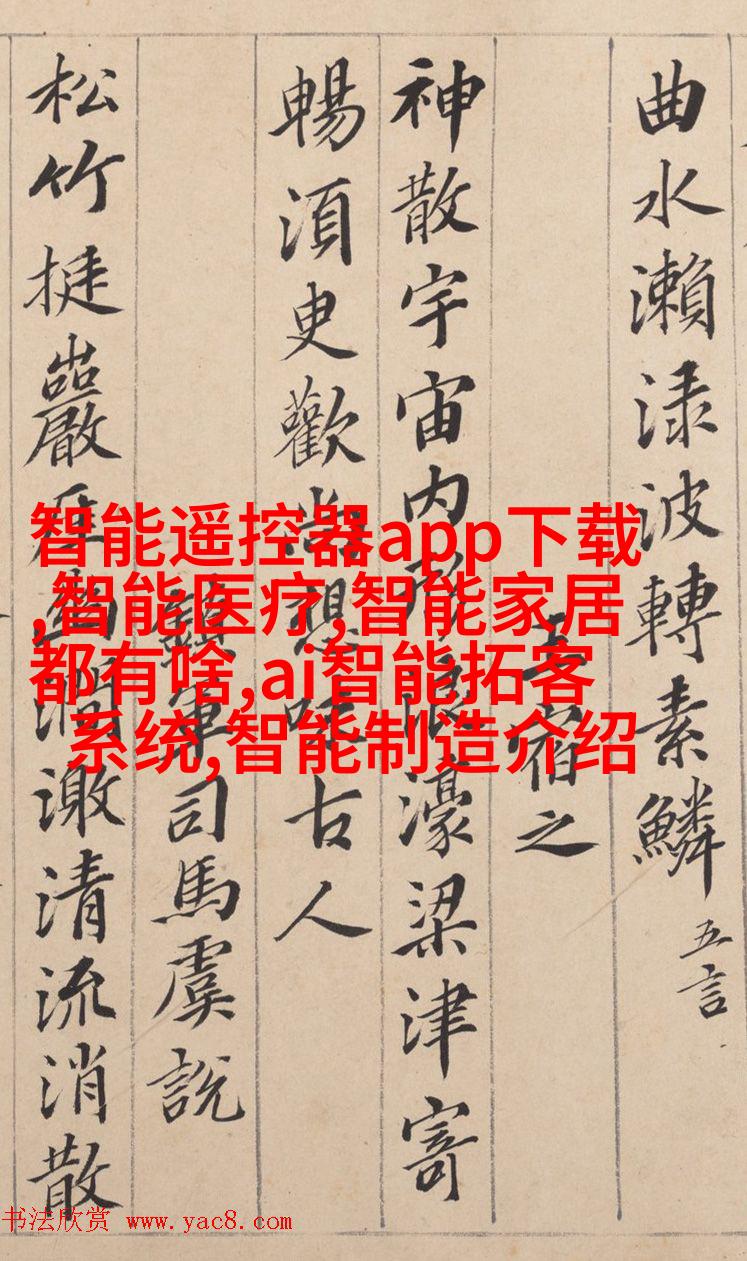 曲水瀨渌波轉素鱗 五言
王宿之
神散宇宙内形浪濠梁津寄
暢湏臾歡尚想味古人
鎮軍司馬虞說
松竹挺巖崖幽澗激清流消散
智能遥控器app下载
,智能医疗,智能家居
都有啥,ai智能拓客
系统,智能制造介绍
书法欣赏 www.yac8.com